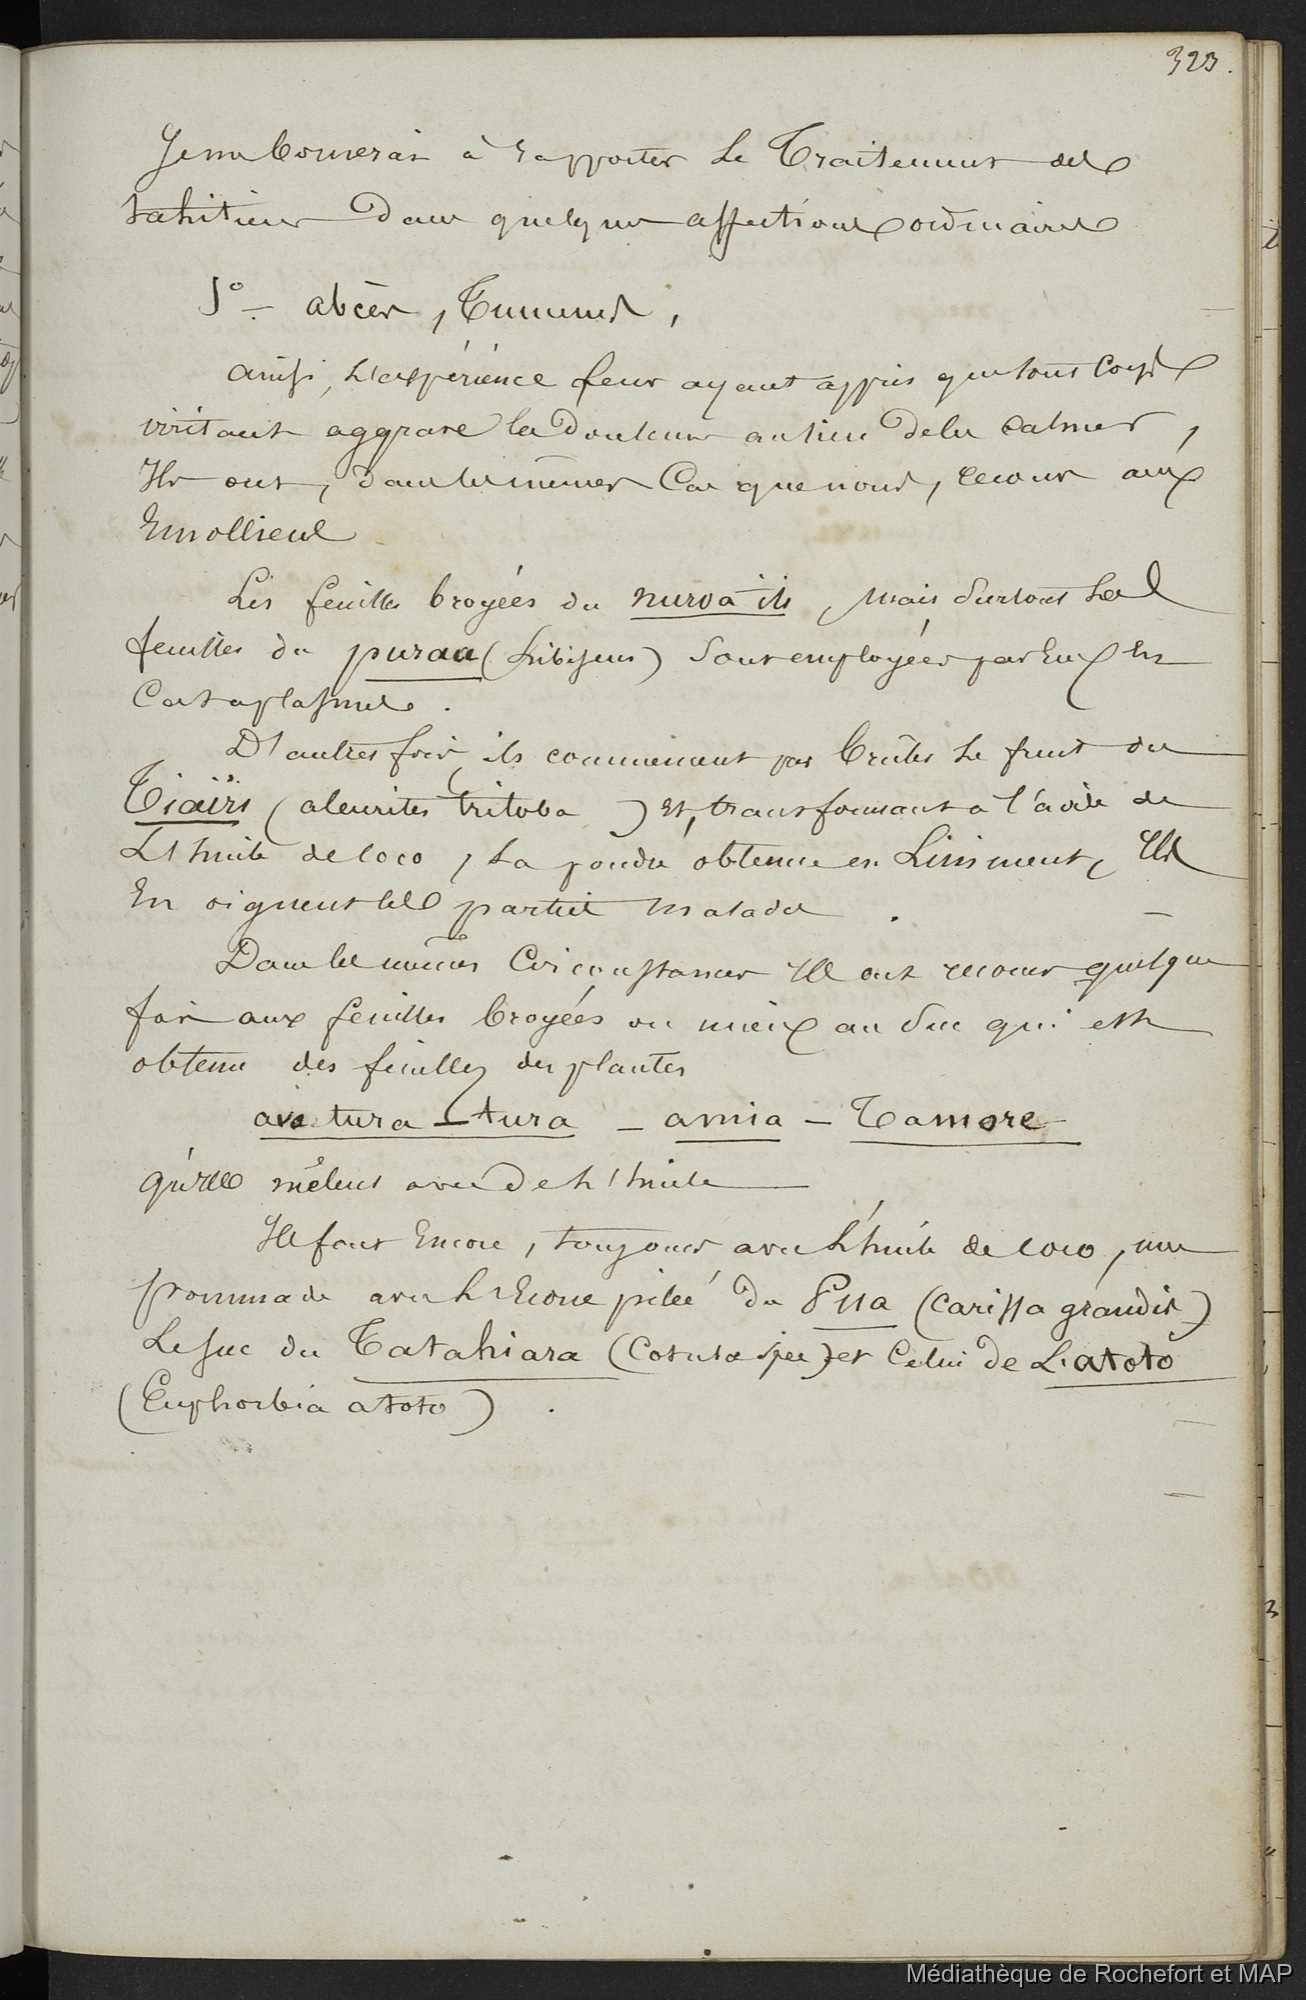 323.
Je me bornerai à rapporter le Traitement des
tahitiens dans quelques affections ordinaires
1º - abcès, Tumeurs,
ainsi, L'expérience leur ayant appris que tout corps
irritant aggrave la douleur au lieu de la calmer,
Ils ont, dans les mêmes Cas que nous, recours aux
Emollients
Les feuilles broyées du, mais surtout les
feuilles du puraa (hibiscus) sont employées par Eux En
Cataplasmes.
D'autres fois, ils commencent par brûler le fruit du
Tiairi (aleurites triloba) et, transformant à l'aide de
L'huile de coco, la poudre obtenue en Liniment, Ils
En oignent les parties malades.
Dans les mêmes Circonstances Ils ont recours quelque
fois aux feuilles broyées ou mieux au suc qui est
obtenu des feuilles des plantes
ava tura-tura - amia - Tamore
qu'ils mêlent avec De L'huile
Ils font Encore, toujours avec L'huile de coco, une
pommade avec L'Ecorce pilée du Pua (Carissa grandis)
Le suc du Tatahiara (Cotula spec) et Celui de L'atoto
(Euphorbia atoto).
Médiathèque de Rochefort et MAP